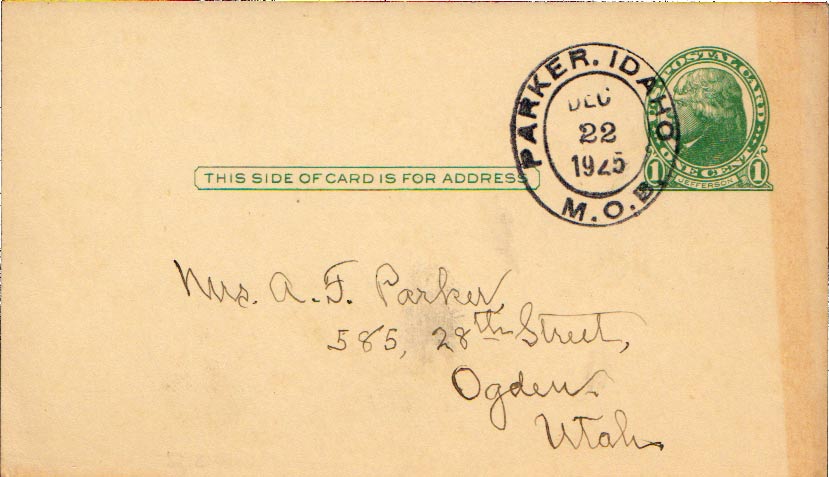 PARKER, IDAHO
DEC
22
1925
M.O.B.
POSTAL CARD
ONE CENT
1 JEFFERSON 1
THIS SIDE OF CARD IS FOR ADDRESS
Mrs. A. F. Parker,
585, 28th Street,
Ogden.
Utah.